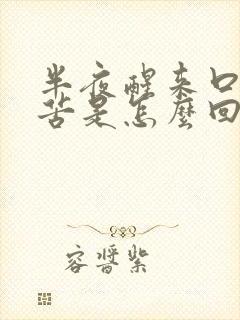 半夜醒来口
苦是怎麼回
容晋紫